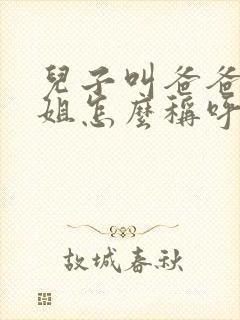 兒子叫爸爸
姐怎麼稱呼
故城春秋